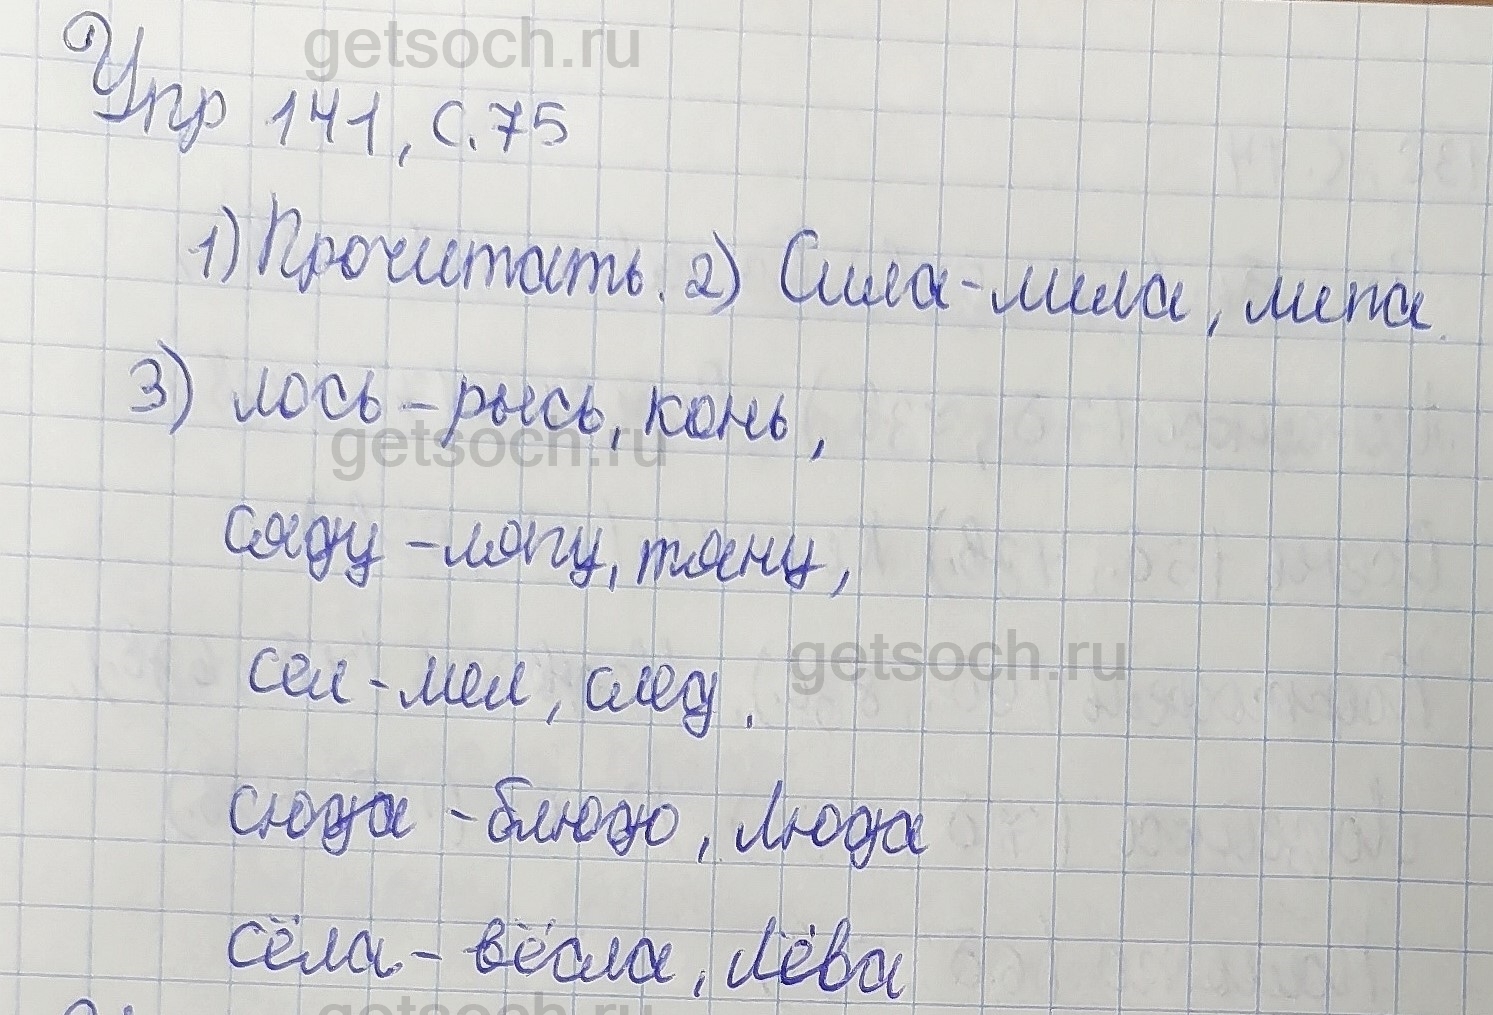 getsoch.ru
Упр 141, с. 75
1) Прочитать. 2) Сила - мила, липа.
3) лось - рысь, конь,
getsoch.ru
сяду - лягу, тяну,
сел - мел, след.
getsoch.ru
сюда - блюдо, Люда
сёла - вёсла, Лёва
getsoch.ru